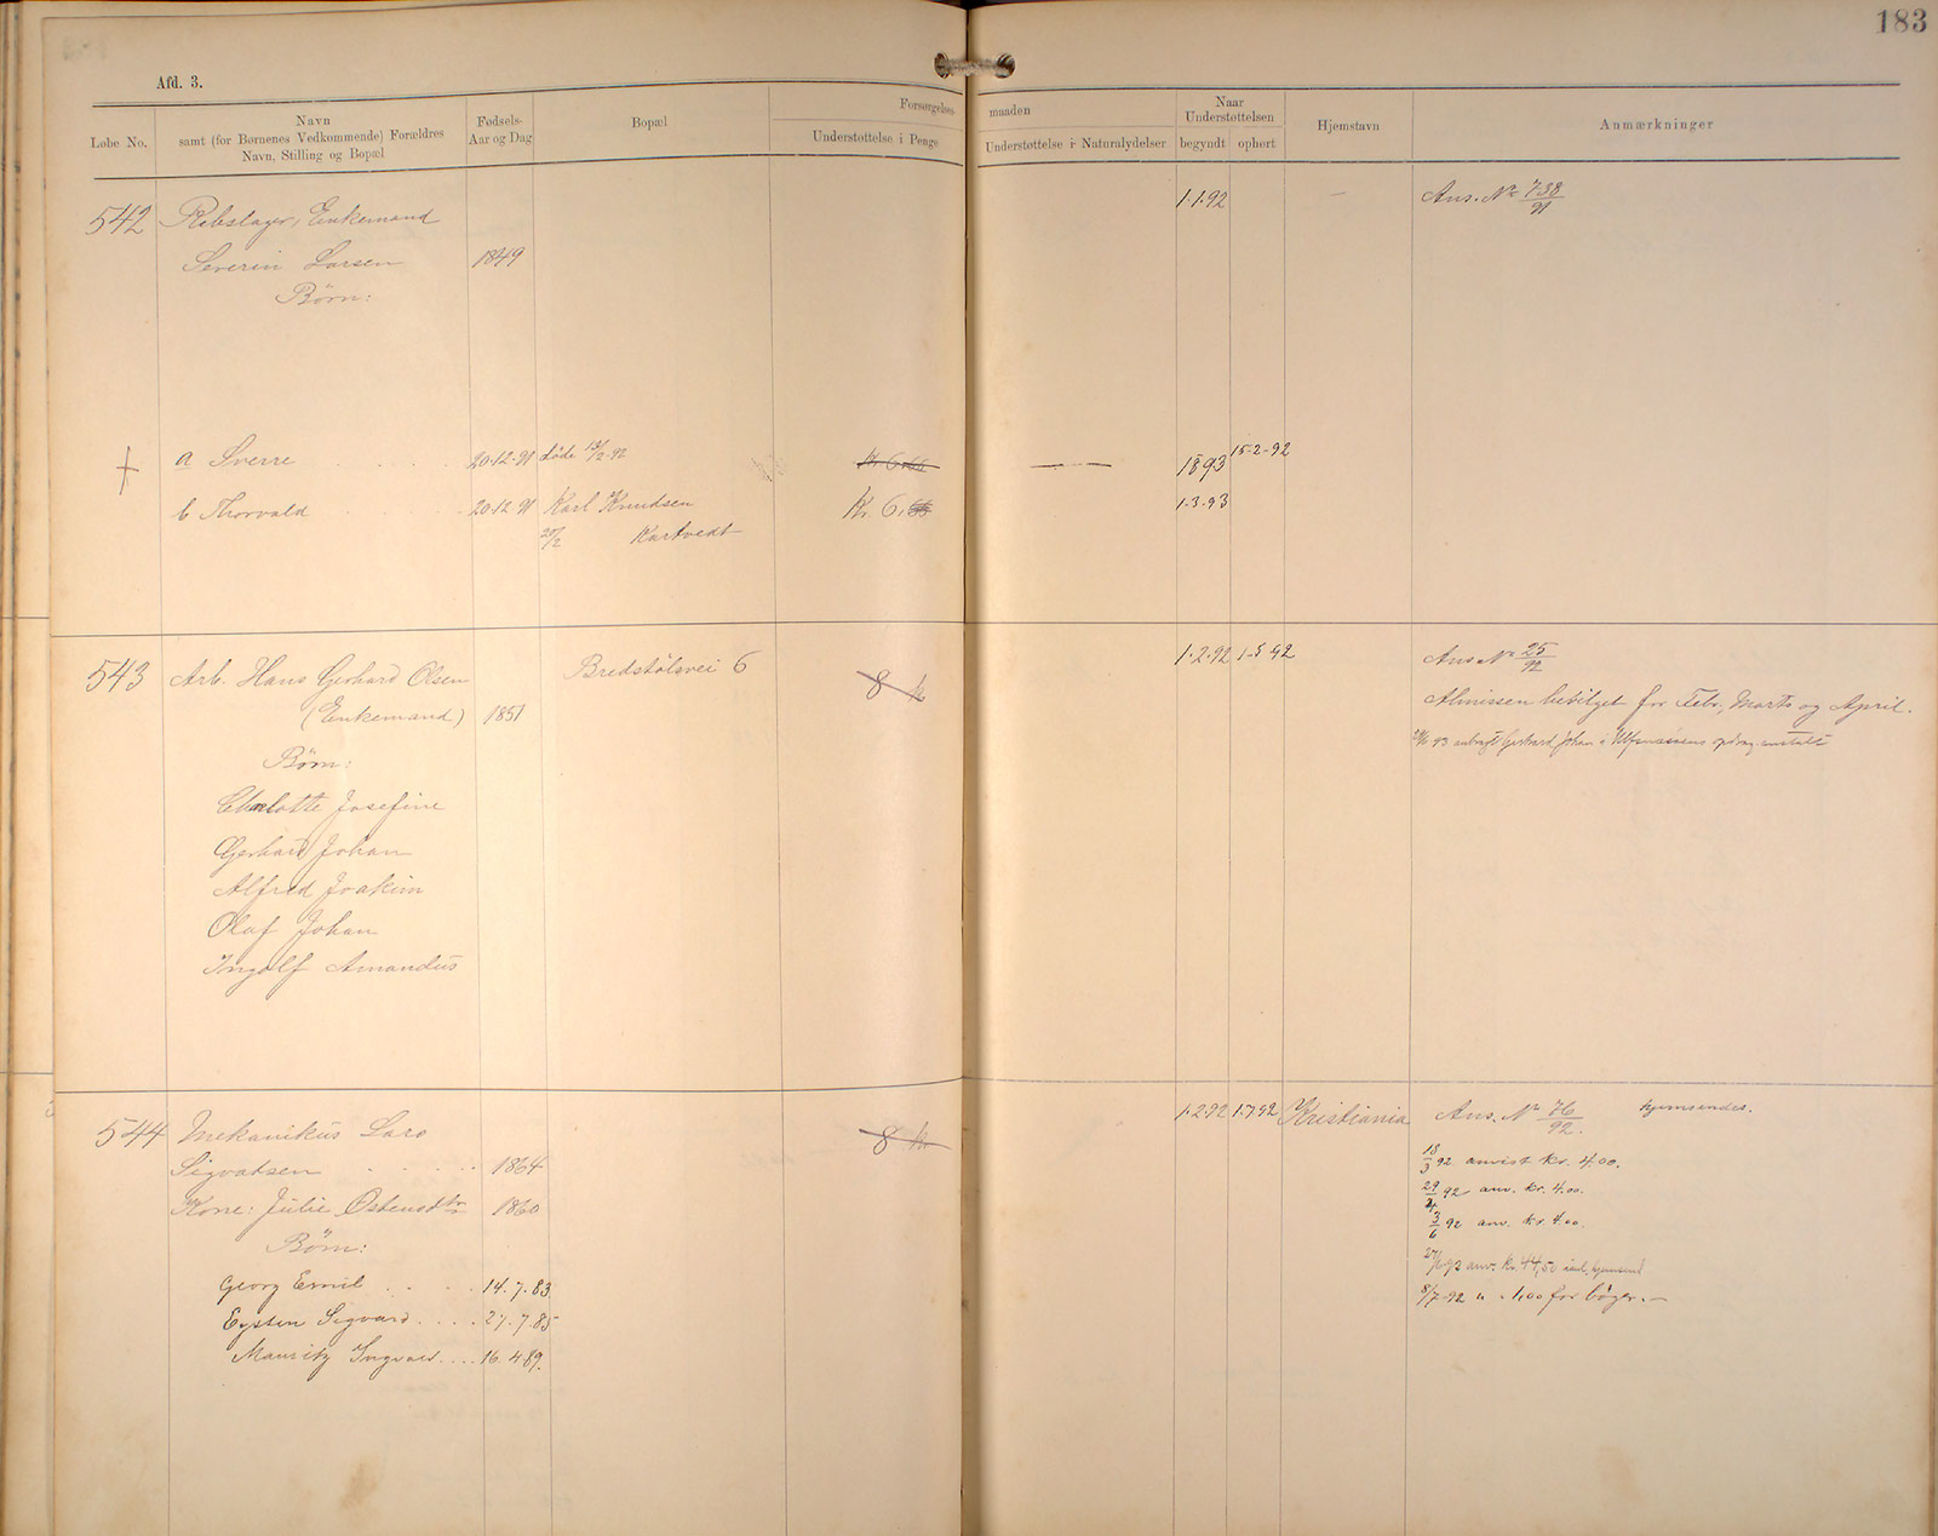 183
Afd. 3.
Løbe No.
Navn
samt (for Børnenes Vedkommende) Forældres
Navn, Stilling og Bopæl
Fødsels-
Aar og Dag
Bopæl
Forsørgelses-
maaden
Understøttelse i Penge
Understøttelse i Naturalydelser
Naar
Understøttelsen
begyndt
ophørt
Hjemstavn
Anmærkninger
542 Rebslager, Enkemand 1.1.92 — Ans. No 738/91
Severin Larsen 1849
Børn:
a Sverre 20.12.91 døde 92 kr. 6.66 — 1893 15-2-92
b Thorvald 20.12.91 Karl Knudsen kr. 6.66 1.3.93
20/2 Kartvedt
543 Arb. Hans Gerhard Olsen Bredstølsvei 6 8 kr 1.2.92 1-5 92 Ans No 25/92
(Enkemand) 1851 Almissen bevilget for Febr., Marts og April.
93 anbragt Gerhard Johan i Ulfsnæsøens opdrag. anstalt
Børn:
Charlotte Josefine
Gerhard Johan
Alfred Joakim
Olaf Johan
Ingolf Amandus
544 Mekanikus Lars 8 kr. 1.2.92 1.7.92 Kristiania Ans. No 76/92. hjemsendes.
Sigvatsen 1864 18/3 92 anvist kr. 4.00.
29/4 92 anv. kr. 4.00.
Kone: Julie Østensdtr 1860 3/6 92 anv. kr. 4.00.
Børn:
27/6 92 anv. kr. 44,50 hjemsend
Georg Emil 14.7.83 8/7-92 " " 1,00 for bøger.—
Eysten Sigvard 27.7.85
Mauritz Ingvald 16.4 89.